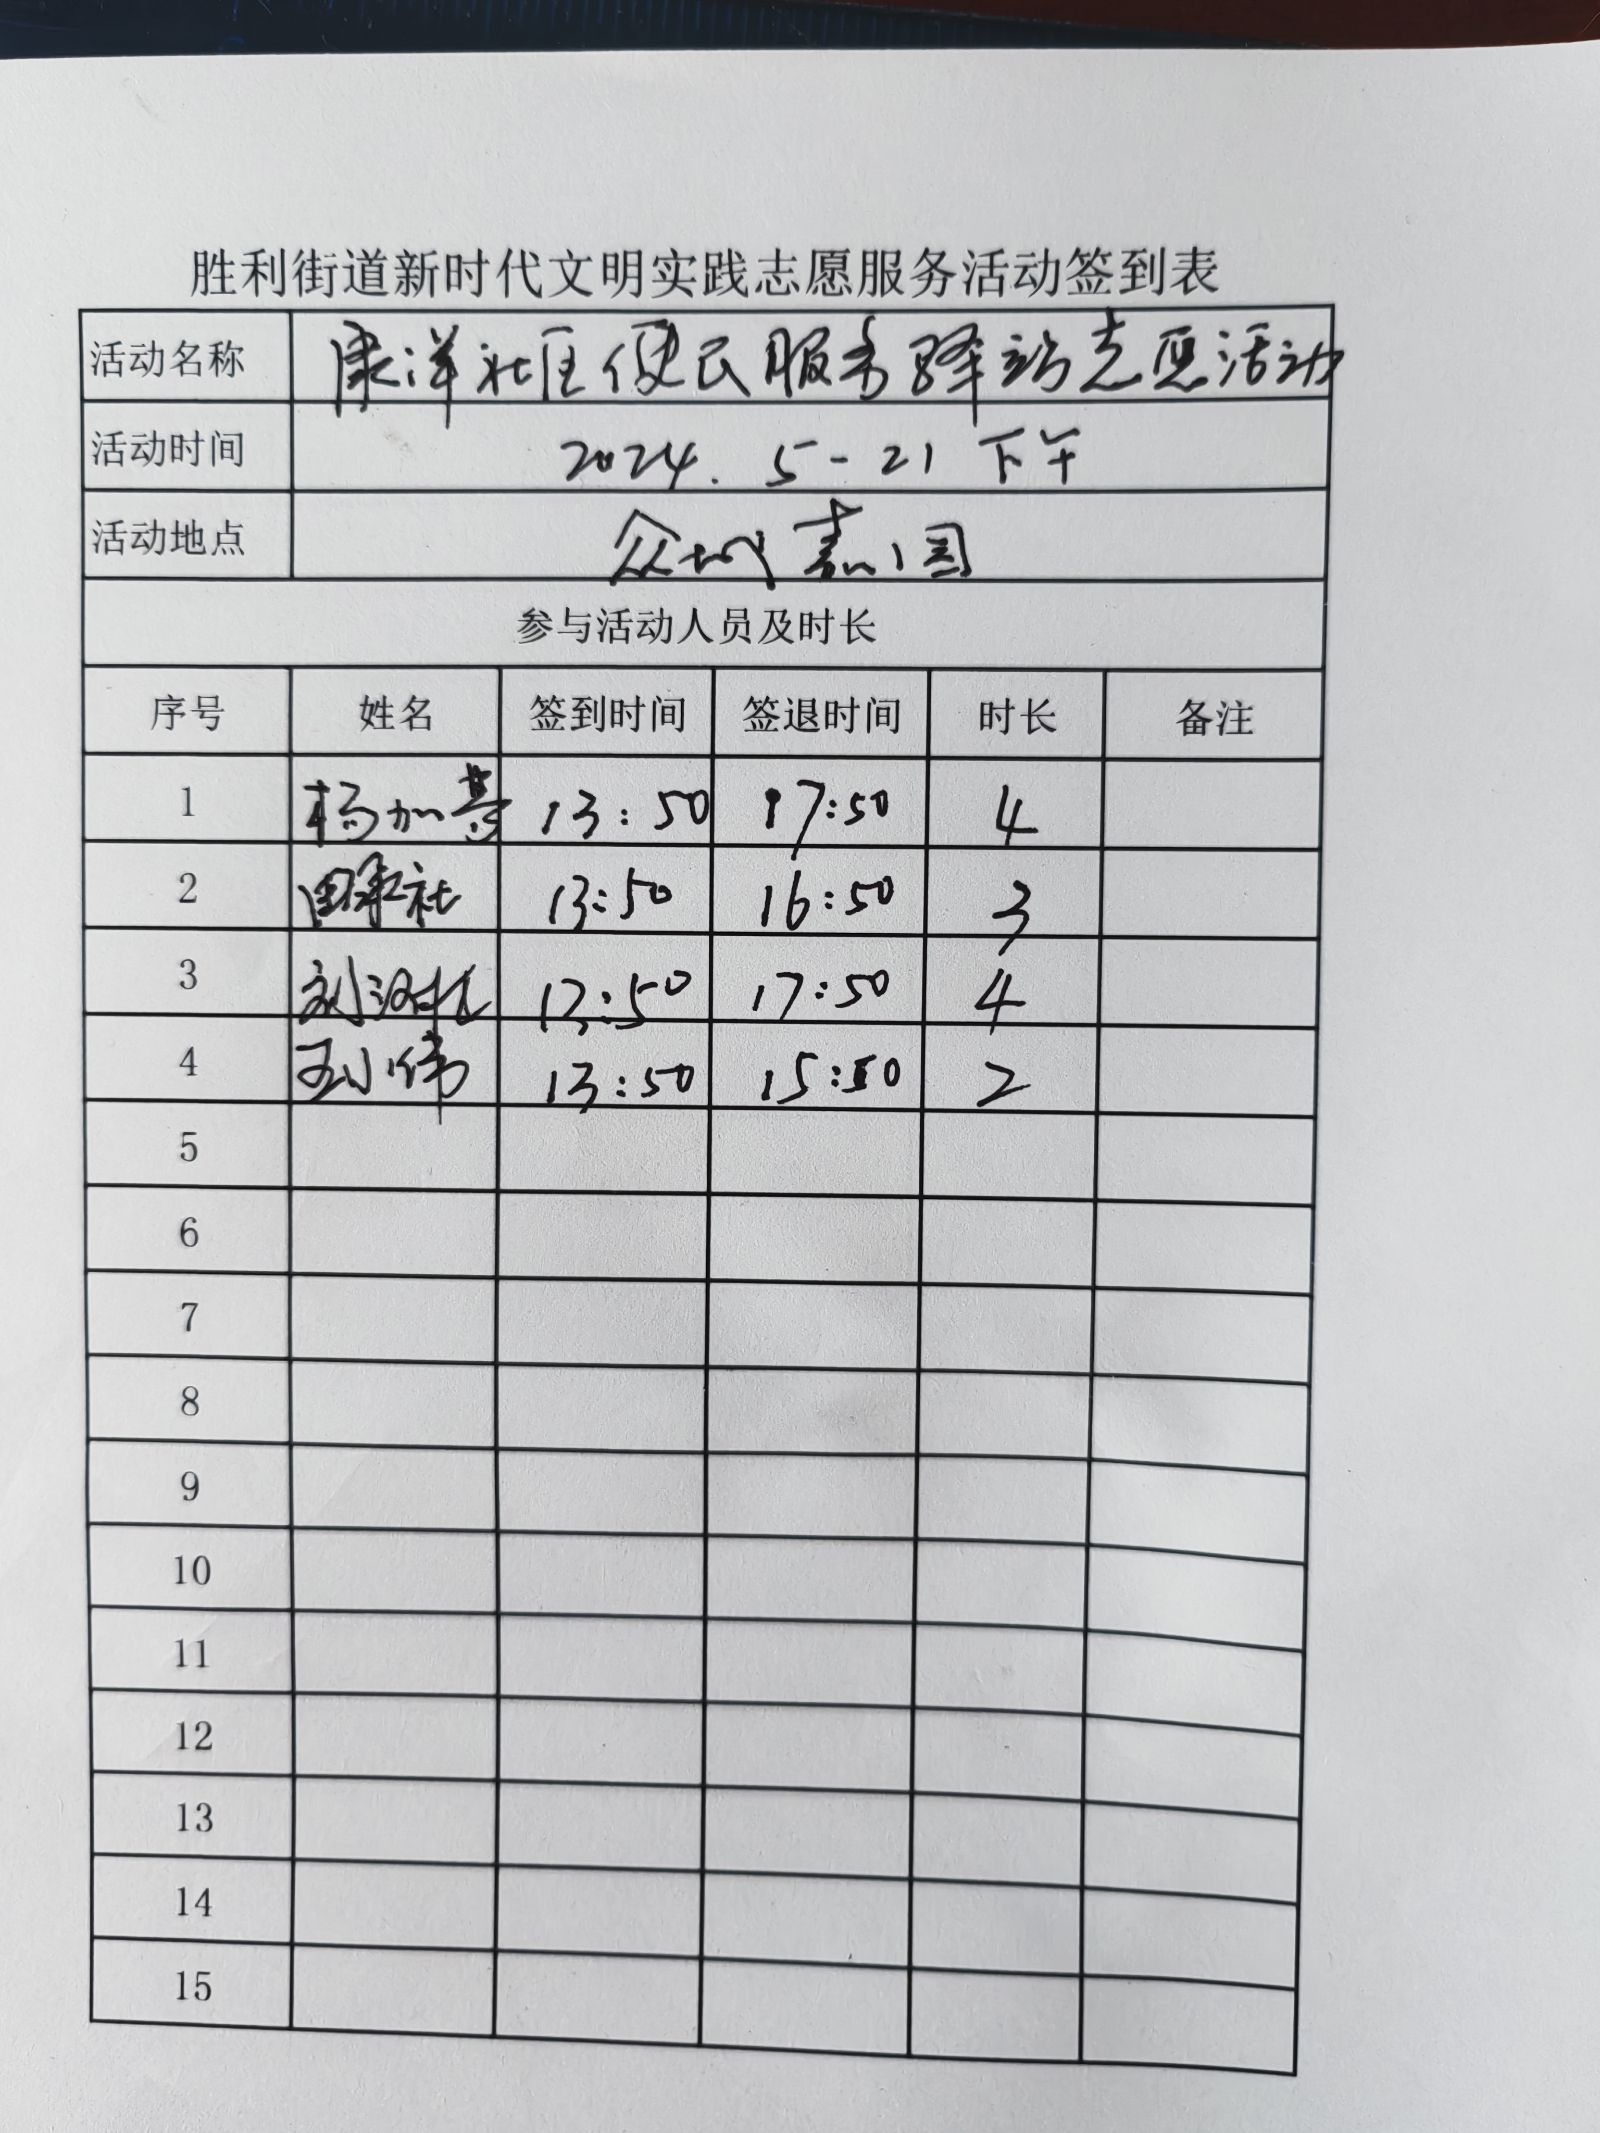 胜利街道新时代文明实践志愿服务活动签到表
活动名称 康洋社区便民服务驿站志愿活动
活动时间 2024. 5-21 下午
活动地点 众成嘉园
参与活动人员及时长
序号 姓名 签到时间 签退时间 时长 备注
1 杨加 13:50 17:50 4
2 田承社 13:50 16:50 3
3 刘汉 13:50 17:50 4
4 王小伟 13:50 15:50 2
5
6
7
8
9
10
11
12
13
14
15